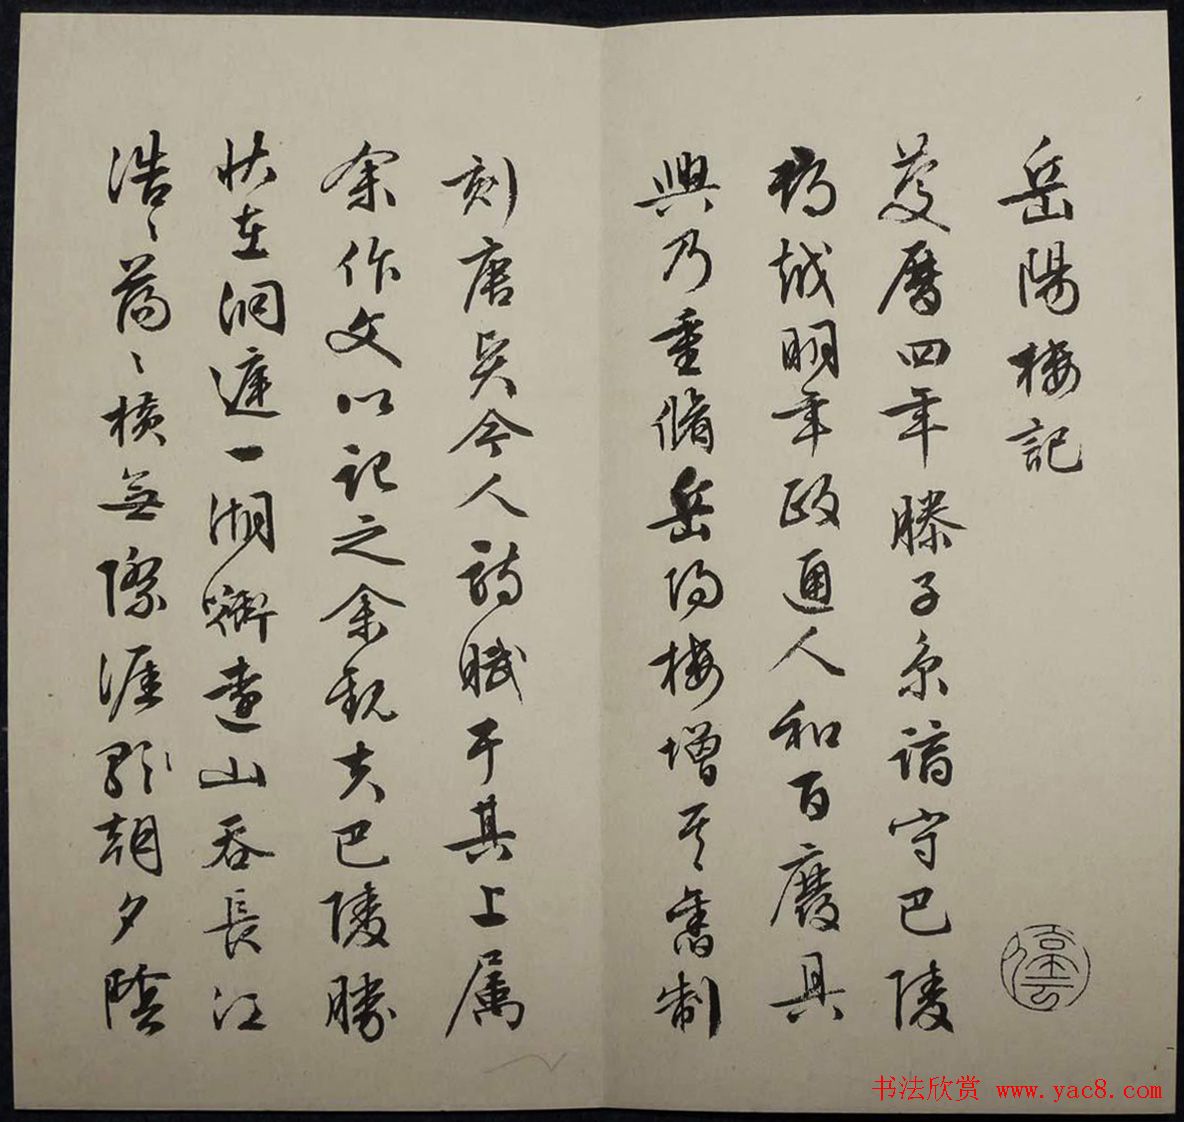 岳陽樓記
慶曆四年滕子京謫守巴陵
郡越明年政通人和百廢具
興乃重脩岳陽樓增其舊制
刻唐賢今人詩賦于其上属
余作文以記之余觀夫巴陵勝
状在洞庭一湖銜遠山吞長江
浩〻蕩〻橫無際涯朝夕陰
书法欣赏 www.yac8.com